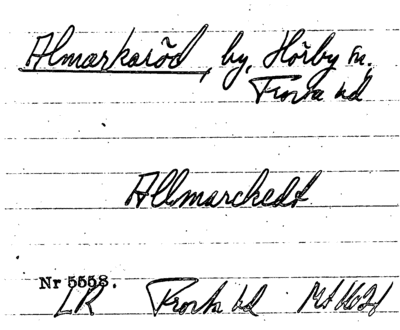 Almarkaröd, by, Hörby sn,
Frosta hd
Allmarckedt
Nr 5558.
LR Frosta hd